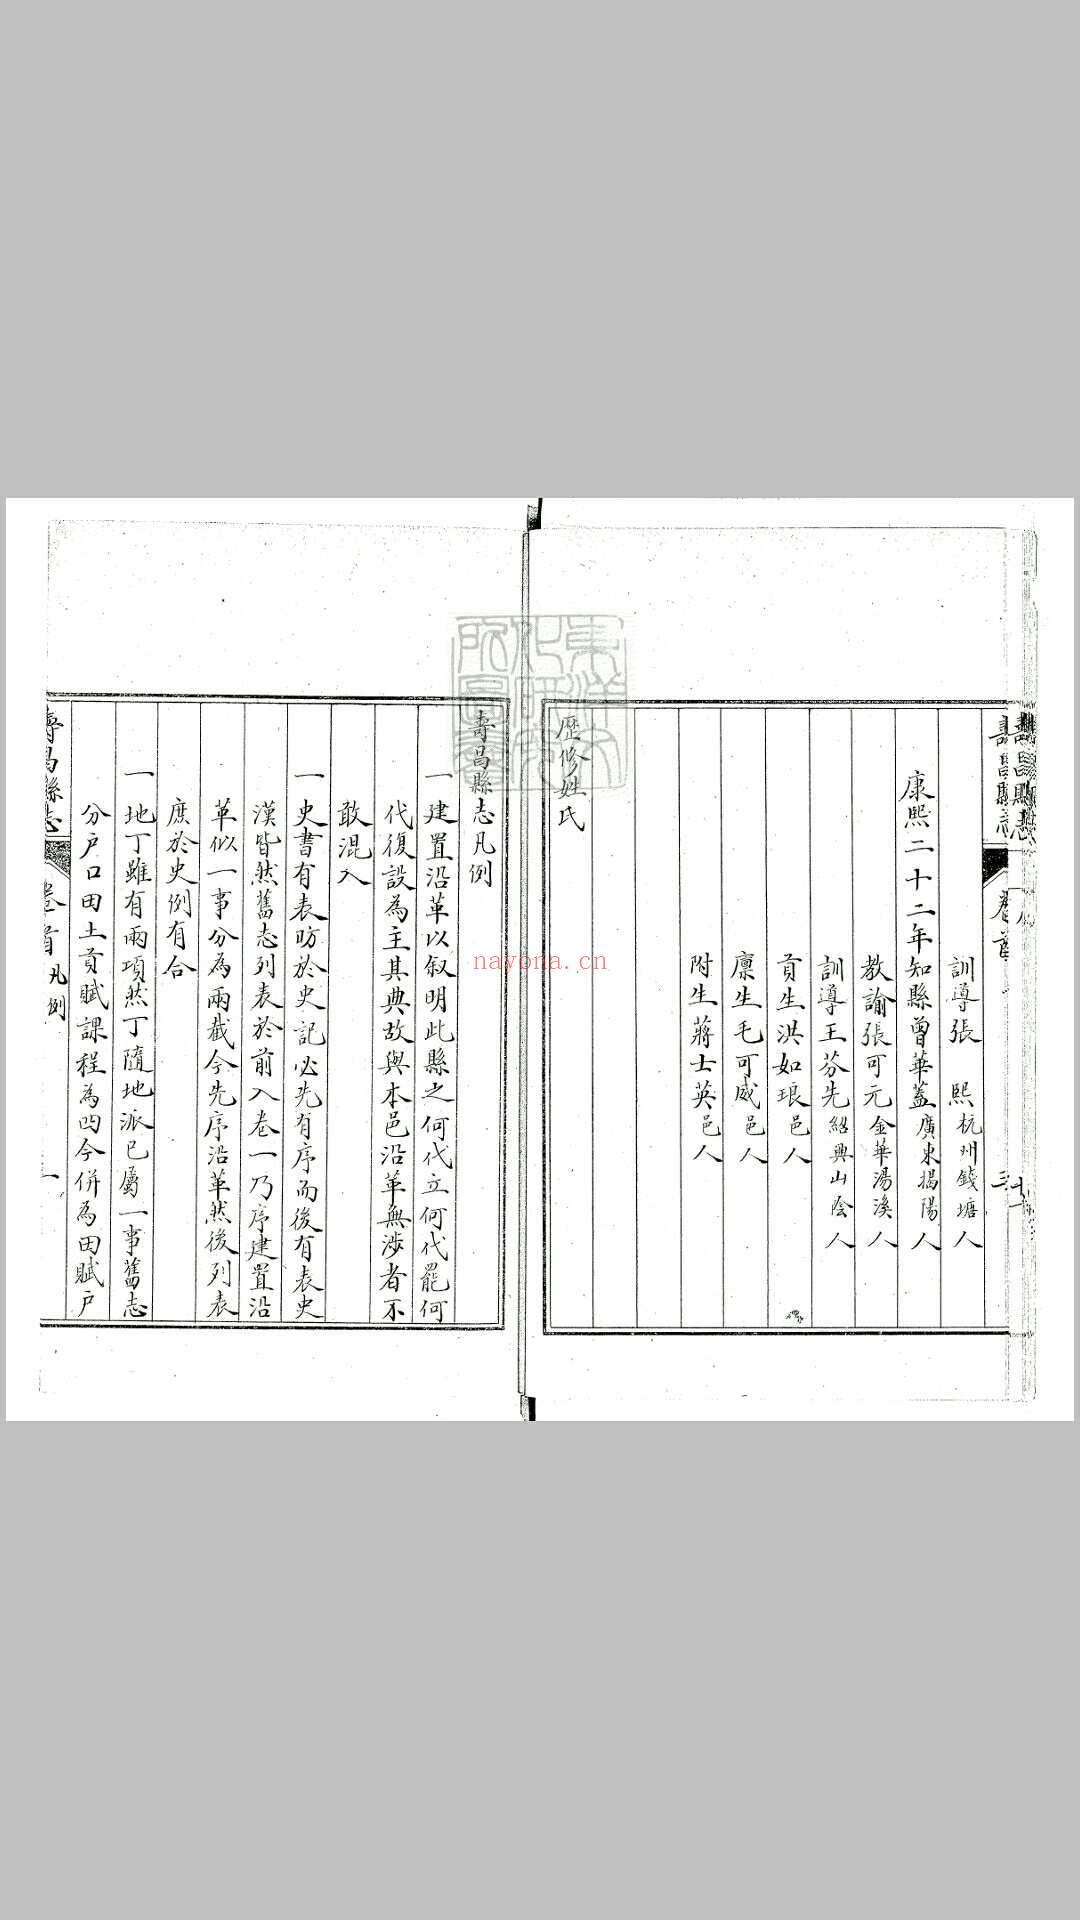 訓導張　熙杭州錢塘人
康熙二十二年知縣曾華蓋廣東揭陽人
教諭張可元金華湯溪人
訓導王芬先紹興山陰人
貢生洪如琅邑人
廪生毛可威邑人
附生蔣士英邑人
歷修姓氏
壽昌縣志凡例
一建置沿革以叙明此縣之何代立何代罷何
代復設為主其典故與本邑沿革無涉者不
敢混入
一史書有表昉於史記必先有序而後有表史
漢皆然舊志列表於前入卷一乃序建置沿
革似一事分為兩截今先序沿革然後列表
庶於史例有合
一地丁雖有兩項然丁隨地派已屬一事舊志
分户口田土貢賦課程為四今併為田賦户
壽昌縣志
卷首
凡例
一
nayona.cn